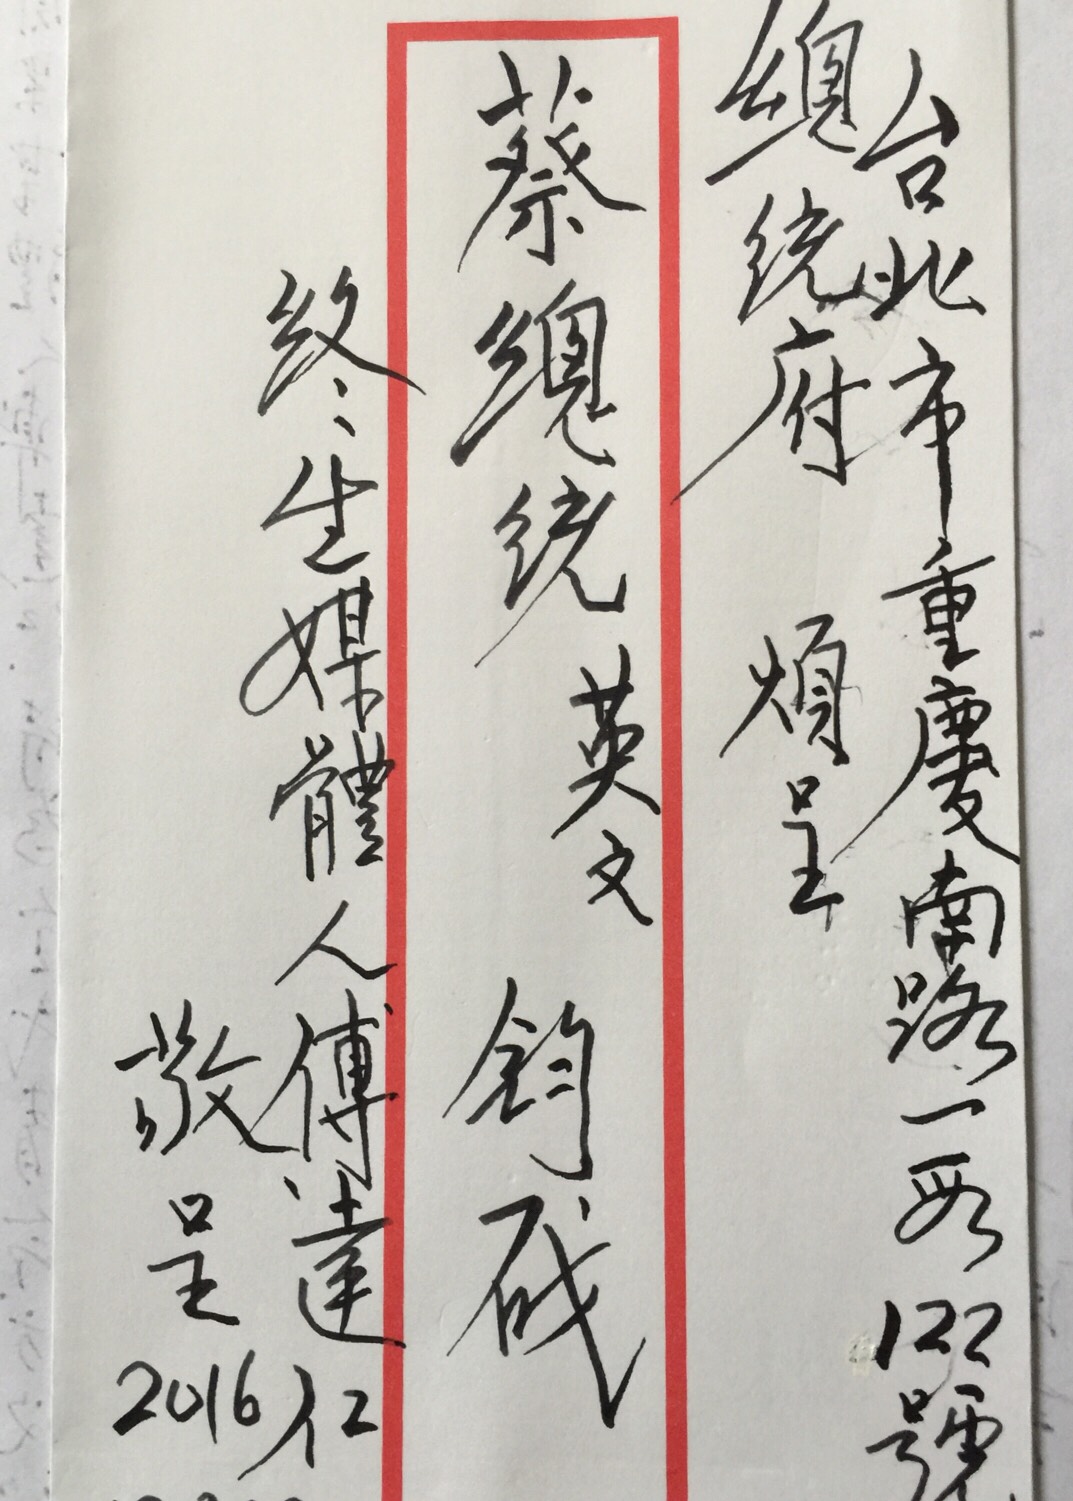 台北市重慶南路一段122號
總統府 煩呈
蔡總統英文 鈞啟
終生媒體人傅達仁
敬呈
2016